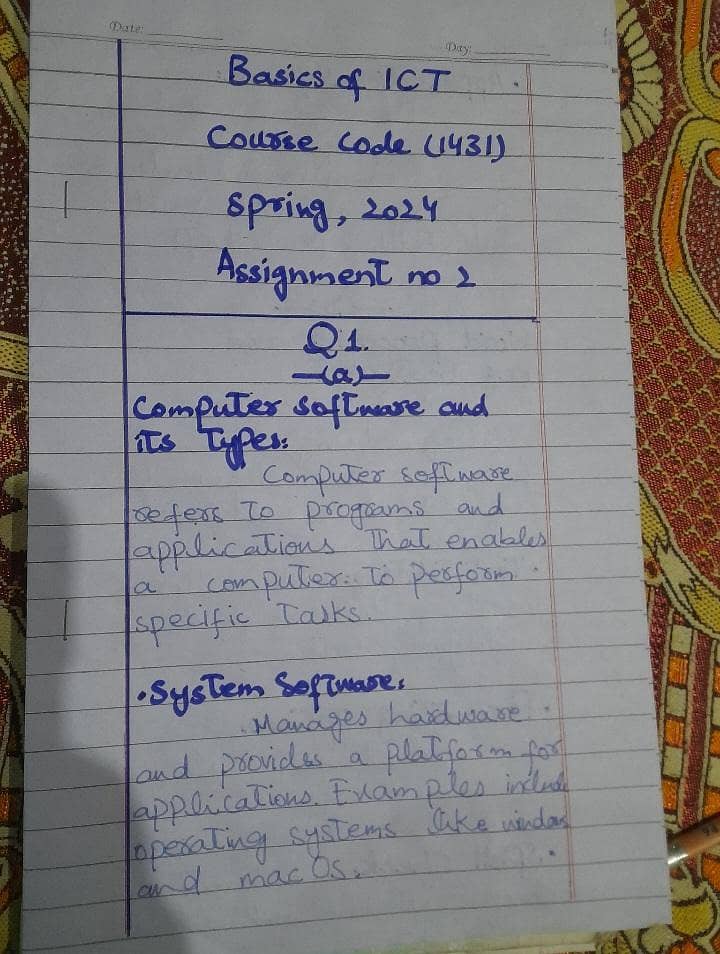 Date:
Day:
Basics of ICT
Course Code (1431)
Spring, 2024
Assignment no 2
Q1.
(a)
Computer Software and
its Types:
Computer software
refers to programs and
applications that enables
a computer to perform
specific Tasks.
• System Software:
Manages hardware
and provides a platform for
applications. Examples include
operating systems like windows
and mac Os.